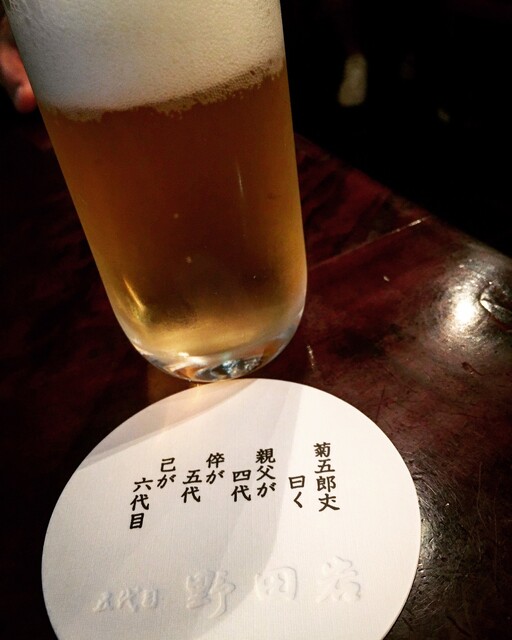 菊五郎丈
曰く
親父が
四代
倅が
五代
己が
六代目
野田岩